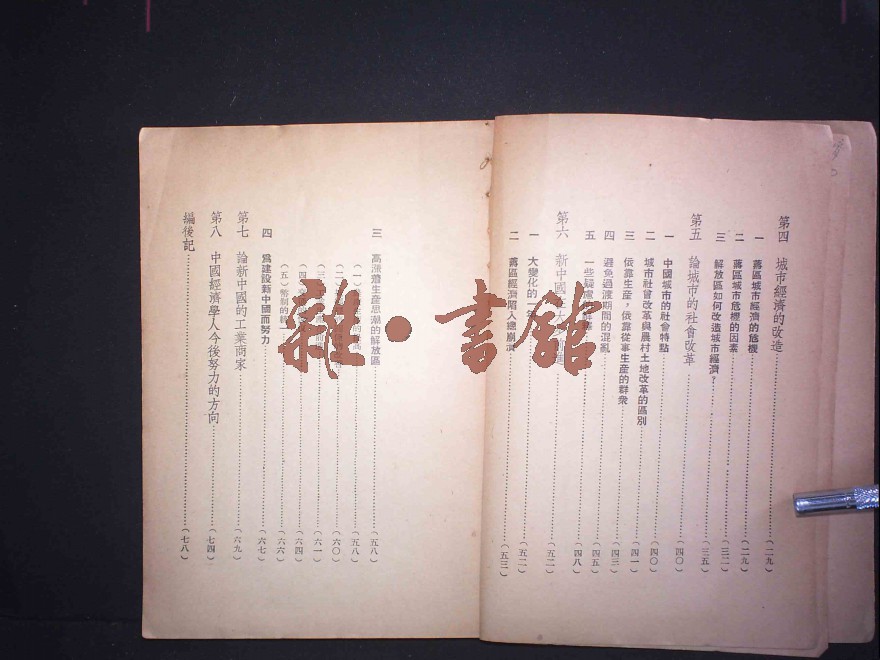 第四 城市經濟的改造……(二九)
一 蔣區城市經濟的危機……(二九)
二 蔣區城市危機的因素……(三二)
三 解放區如何改造城市經濟?……(三五)
第五 論城市的社會改革……(四〇)
一 中國城市的社會特點……(四〇)
二 城市社會改革與農村土地改革的區別……(四一)
三 依靠生產,依靠從事生產的群衆……(四三)
四 避免過渡期間的混亂……(四五)
五 一些……(四八)
第六 新中國……(五二)
一 大變化的一年……(五二)
二 蔣區經濟……人總崩潰……(五三)
三 高漲着生產思潮的解放區……(五八)
(一)……(五八)
(二)……(六〇)
(三)……(六一)
(四)……(六四)
(五)幣制的……(六六)
四 爲建設新中國而努力……(六七)
第七 論新中國的工業商家……(六九)
第八 中國經濟學人今後努力的方向……(七四)
編後記……(七八)
雜·書館